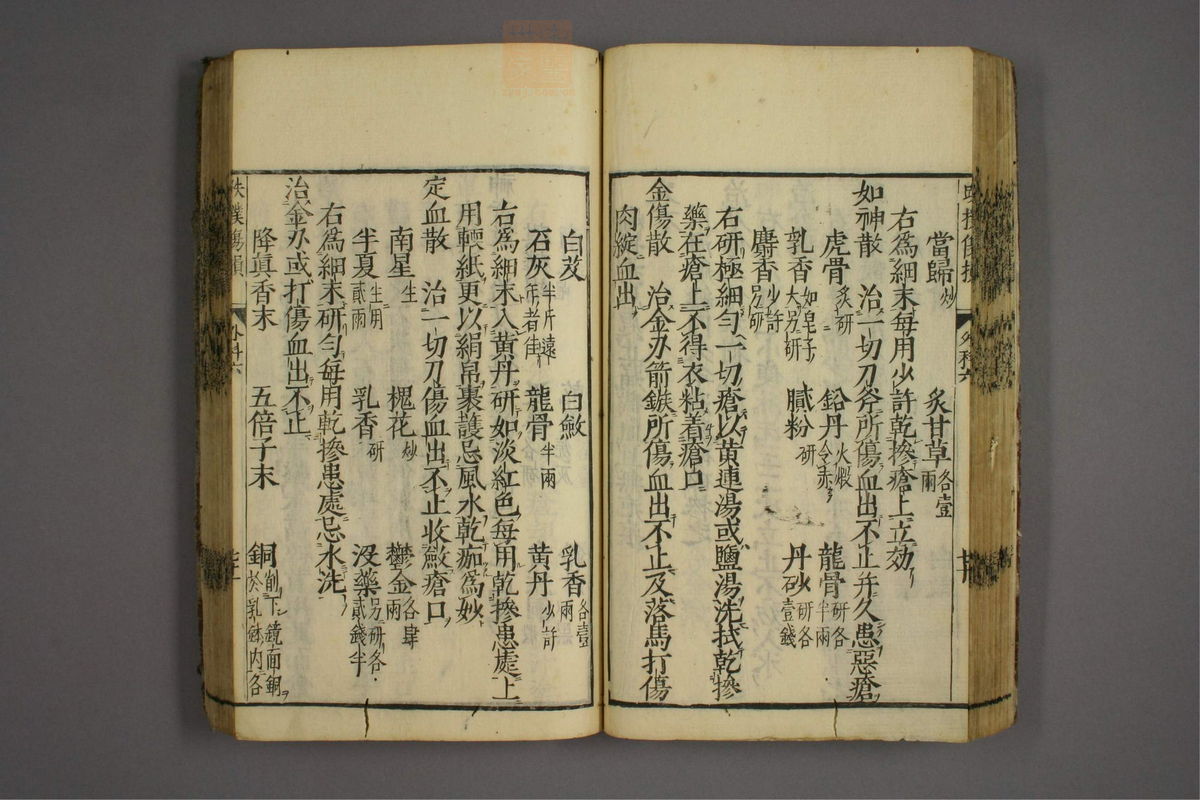 當歸炒 炙甘草各壹兩
右爲細末每用少許乾摻瘡上立効
如神散 治一切刀斧所傷血出不止并久患惡瘡
虎骨炙研 鉛丹火煅令赤 龍骨研各半兩
乳香如皂子大另研 膩粉研 丹砂研各壹錢
麝香少許另研
右研極細勻一切瘡以黄連湯或鹽湯洗拭乾摻
藥在瘡上不得衣粘着瘡口
金傷散 治金刅箭鏃所傷血出不止及落馬打傷
肉綻血出
白芨 白斂 乳香各壹兩
石灰半斤遠年者佳 龍骨半兩 黄丹少許
右爲細末入黄丹研如淡紅色每用乾摻患處上
用輭紙更以絹帛裹護忌風水乾痂爲妙
定血散 治一切刀傷血出不止收斂瘡口
南星生 槐花炒 鬱金各肆兩
半夏生用貳兩 乳香研 没藥另研各貳錢半
右爲細末研勻每用乾摻患處忌水洗
治金刅或打傷血出不止
降眞香末 五倍子末 銅削下鏡面銅於乳鉢内各
外科六